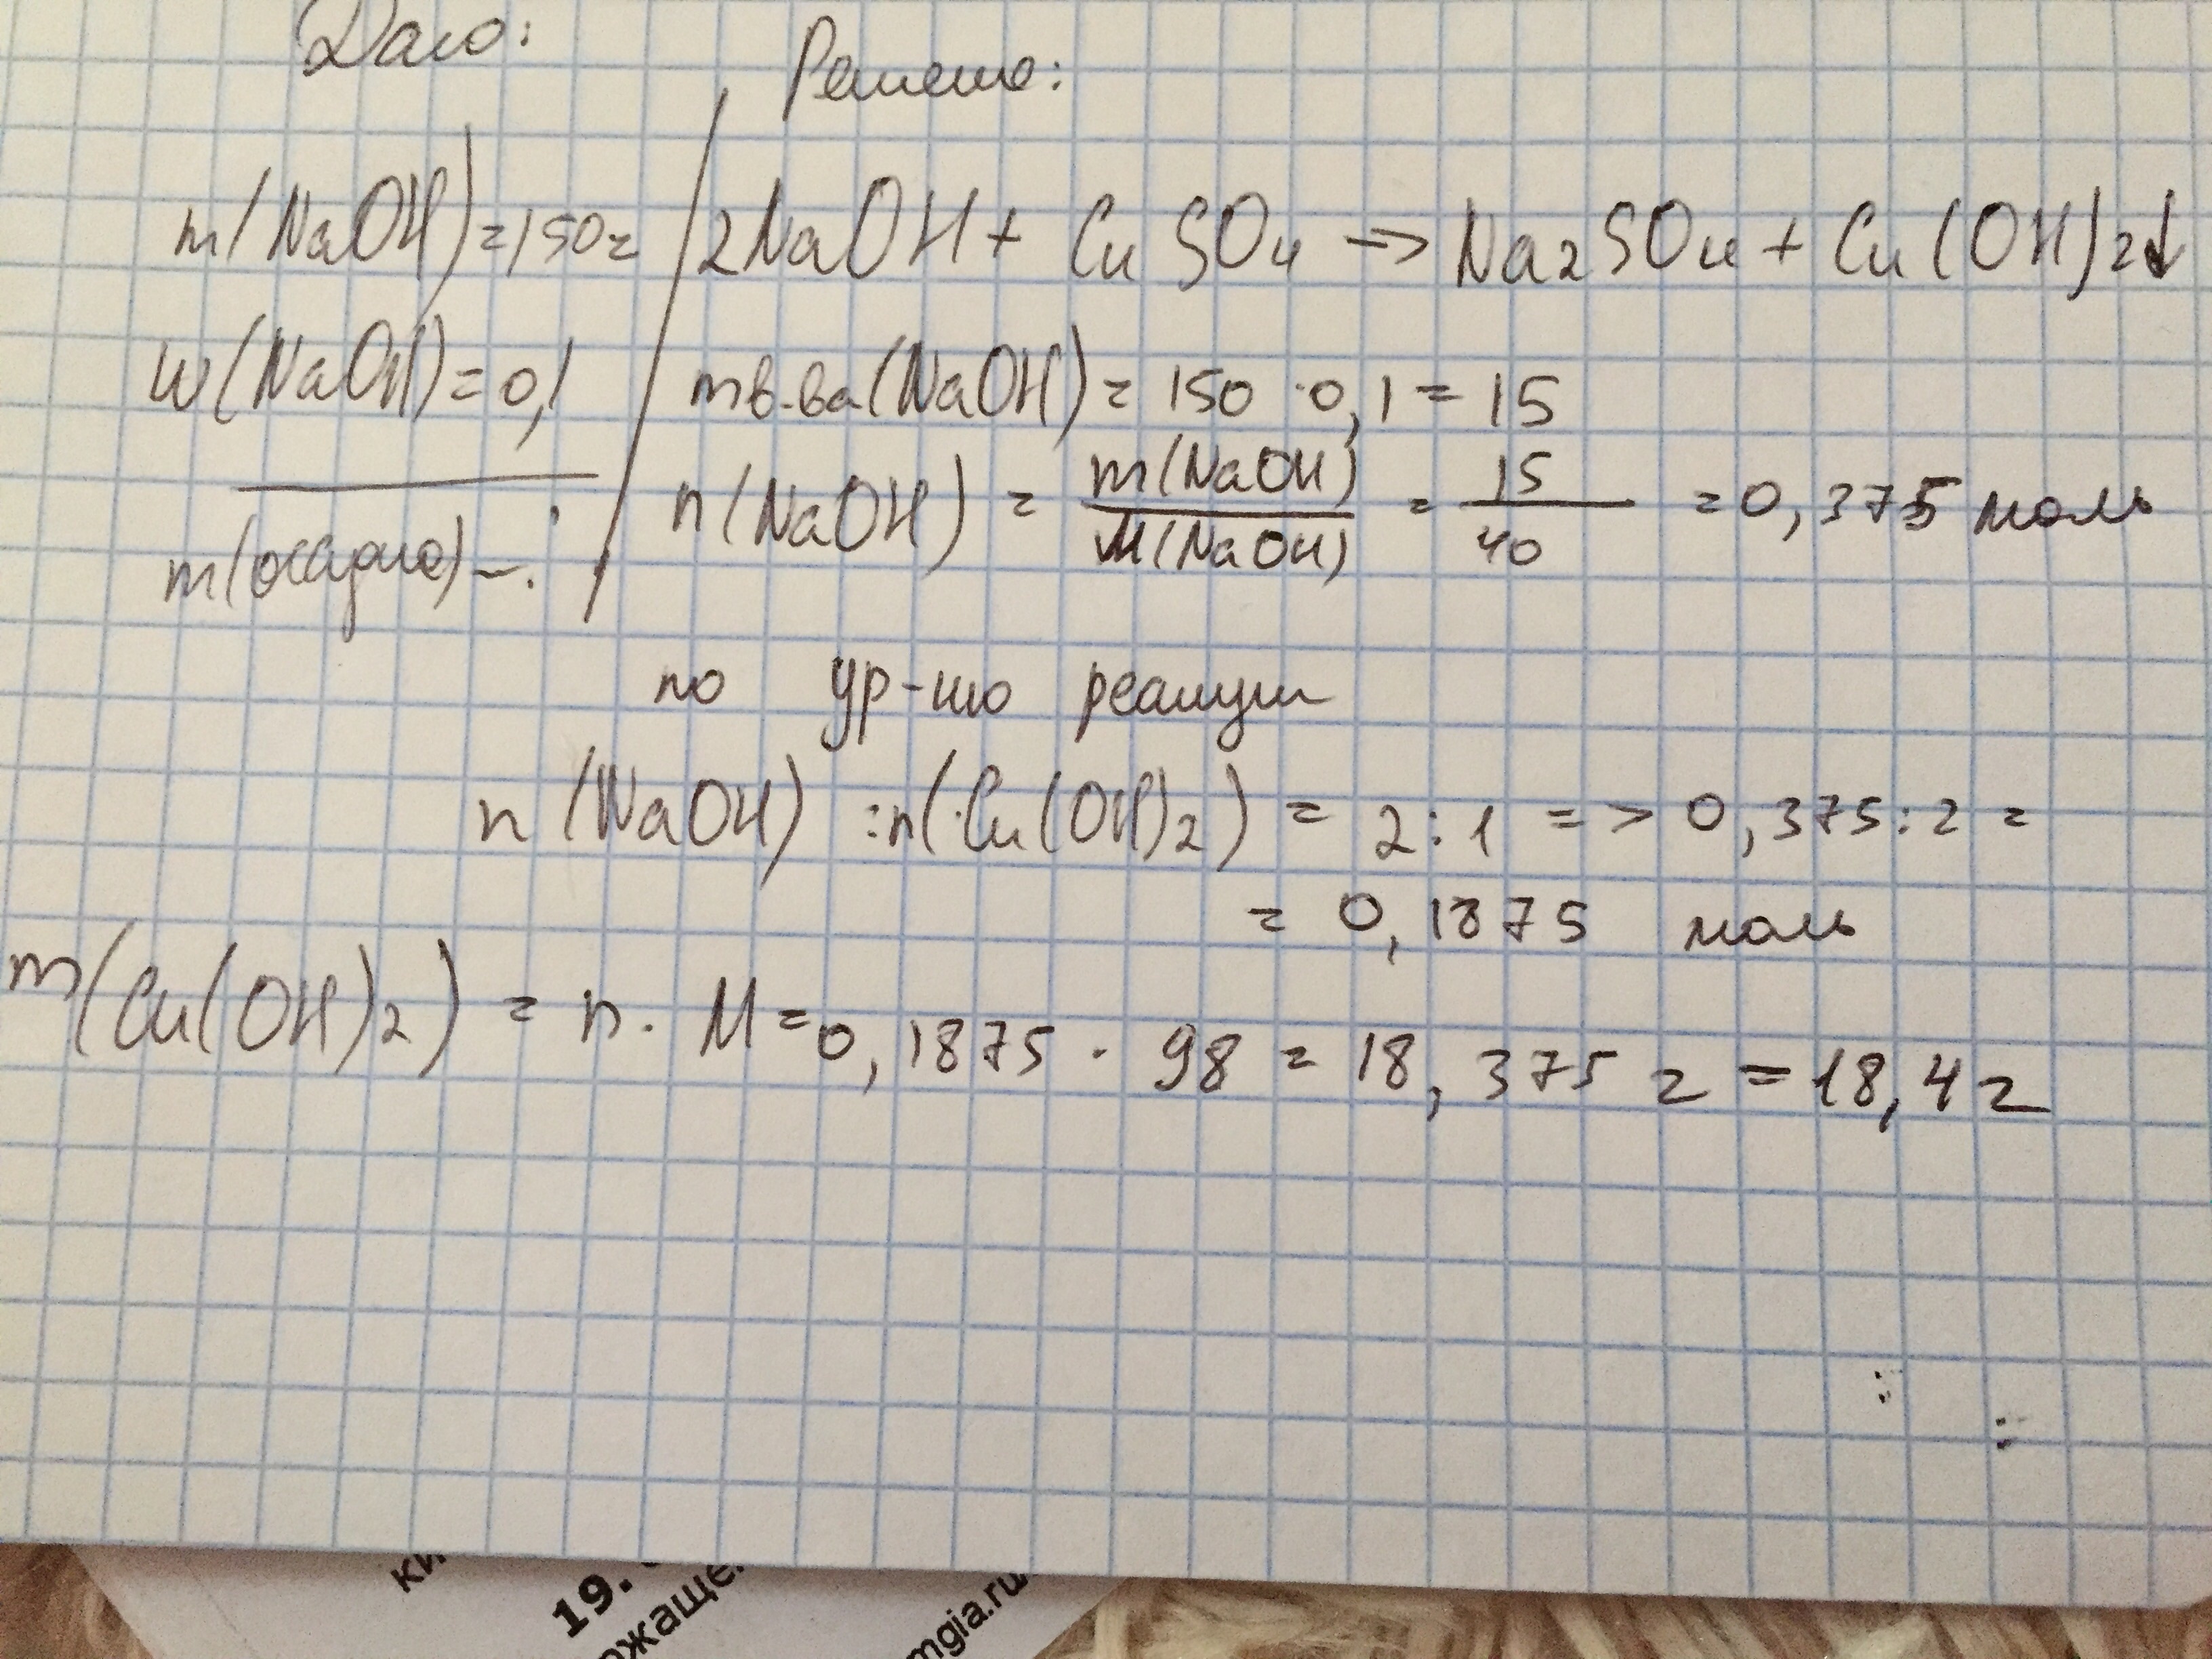 Дано:
Решение:
m(NaOH)=150г
2NaOH + CuSO4 → Na2SO4 + Cu(OH)2↓
w(NaOH)=0,1
mв-ва(NaOH) = 150 · 0,1 = 15
m(осадка) – ?
n(NaOH) = m(NaOH)/M(NaOH) = 15/40 = 0,375 моль
по ур-ию реакции
n(NaOH) : n(Cu(OH)2) = 2:1 => 0,375:2 =
= 0,1875 моль
m(Cu(OH)2) = n · M = 0,1875 · 98 = 18,375 г = 18,4 г
19.
mgia.ru